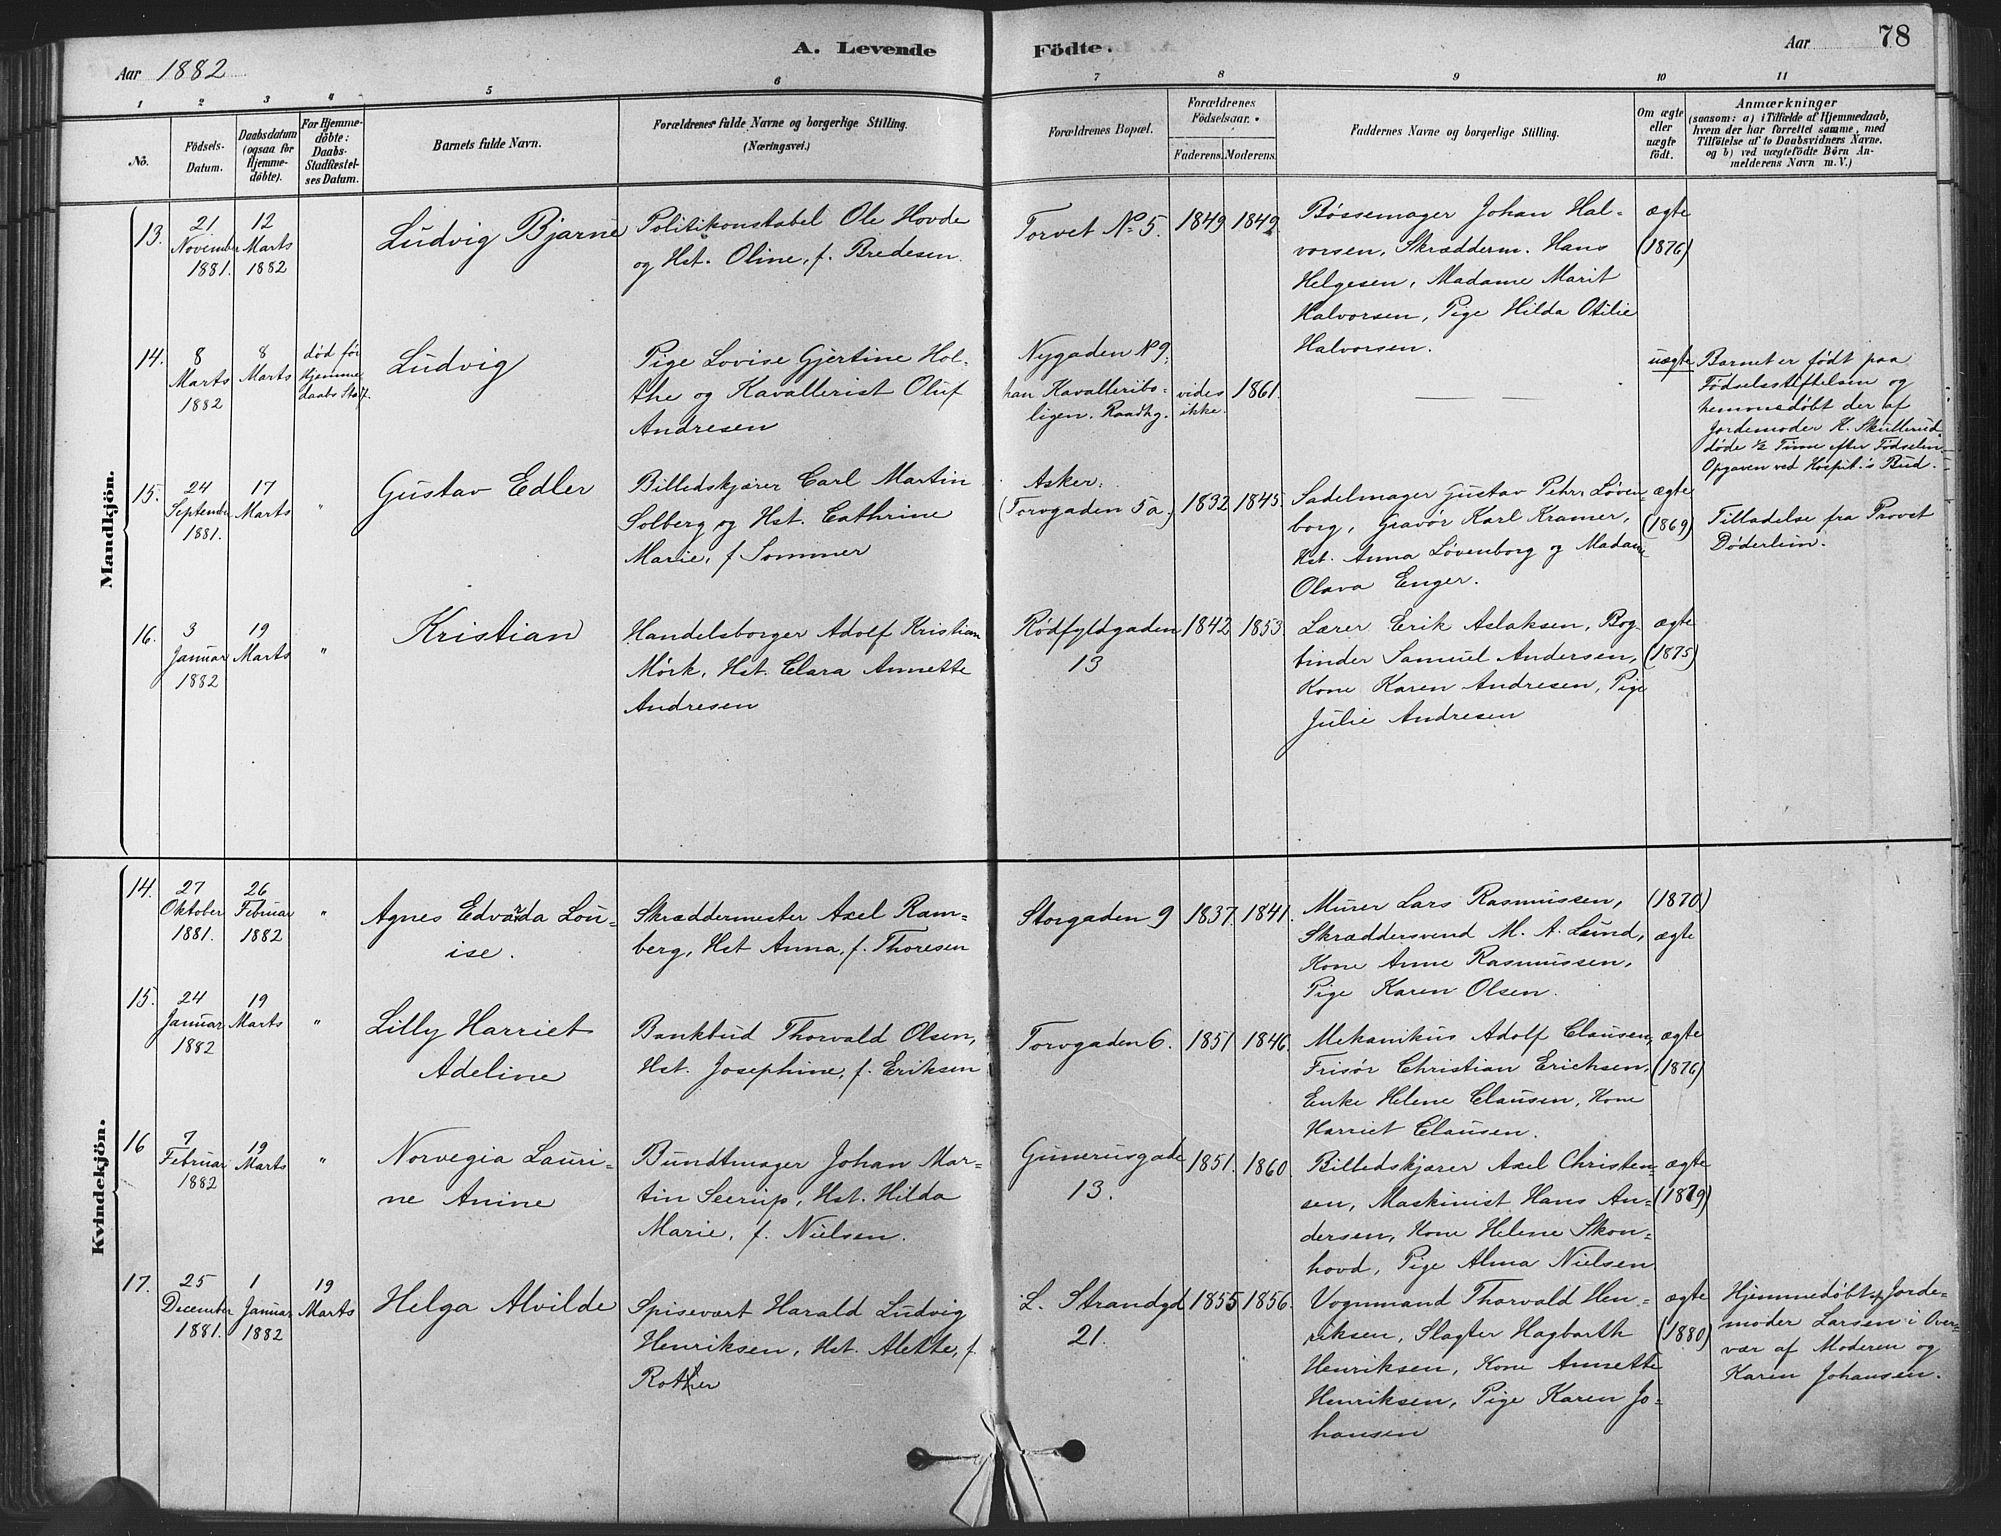 A. Levende Födte.
78
Aar 1882
Aar
1
2
3
4
5
6
7
8
9
10
11
No.
Födsels-
Datum.
Daabsdatum
(ogsaa for
Hjemme-
døbte).
For Hjemme-
døbte:
Daabs-
Stadfæstel-
ses Datum.
Barnets fulde Navn.
Forældrenes fulde Navne og borgerlige Stilling.
(Næringsvei.)
Forældrenes Bopæl.
Forældrenes
Födselsaar.
Faderens.
Moderens.
Faddernes Navne og borgerlige Stilling.
Om ægte
eller
uægte
født.
Anmærkninger
(saasom: a) i Tilfælde af Hjemmedaab,
hvem der har forrettet samme, med
Tilföielse af to Daabsvidners Navne,
og b) ved uægtefödte Börn An-
melderens Navn m.V.)
Mandkjön.
13.
21
November
1881.
12
Marts
1882
Ludvig Bjarne
Politikonstabel Ole Hovde
og Hst. Oline, f. Bredesen.
Torvet No 5.
1849
1849
Bøssemager Johan Hal-
vorsen, Skrædderm. Hans
Helgesen, Madame Marit
Halvorsen, Pige Hilda Otilie
Halvorsen.
ægte
(1876)
14.
8
Marts
1882
8
Marts
død før
Hjemme
daabs Stadf.
Ludvig
Pige Lovise Gjertine Hol-
the og Kavallerist Oluf
Andresen
Nygaden No 9,
han Kavalleribo-
ligen. Raadhg.
vides
ikke.
1861.
uægte
Barnet er født paa
Fødselsstiftelsen og
hemmedøbt der af
Jordemoder K. Skullerud
døde 1/2 Time efter Fødselen
Opgaven ved Hospit.'s Bud.
15.
24
September
1881.
17
Marts
"
Gustav Edler
Billedskjærer Carl Martin
Solberg og Hst. Cathrine
Marie, f. Sommer
Asker.
(Torvgaden 5a.)
1832
1845.
Sadelmager Gustav Petr. Løven-
borg, Gravør Karl Kramer,
Hst. Anna Løvenborg og Madam
Olava Enger.
ægte
(1869)
Tilladelse fra Provst
Døderlein.
16.
3
Januar
1882
19
Marts
"
Kristian
Handelsborger Adolf Kristian
Mørk, Hst. Clara Annette
Andresen
Rødfyldgaden
13
1842
1853.
Lærer Erik Aslaksen, Bog-
binder Samuel Andersen,
Kone Karen Andresen, Pige
Julie Andresen
ægte
(1875)
Kvindekjön.
14.
27
Oktober
1881.
26
Februar
1882
"
Agnes Edvarda Lou-
ise.
Skræddermester Axel Ram-
berg, Hst Anna, f. Thoresen
Storgaden 9
1837.
1841.
Murer Lars Rasmussen,
Skræddersvend M. A. Lund,
Kone Anne Rasmussen,
Pige Karen Olsen.
(1870)
ægte
15.
24
Januar
1882
19
Marts
"
Lilly Harriet
Adeline
Bankbud Thorvald Olsen,
Hst. Josephine, f. Eriksen
Torvgaden 6.
1851
1846.
Mekanikus Adolf Clausen,
Frisør Christian Erichsen,
Enke Helene Clausen, Kone
Harriet Clausen.
ægte
(1876)
16
7
Februar
1882
19
Marts
"
Norvegia Lauri-
ne Anine
Bundtmager Johan Mar-
tin Seerup, Hst. Hilda
Marie, f. Nielsen.
Gunerusgade
13.
1851.
1860
Billedskjærer Axel Christen-
sen, Maskinist Hans An-
dersen, Kone Helene Skon-
hovd, Pige Alma Nielsen
ægte
(1879)
17.
25
December
1881.
1
Januar
1882
19
Marts
Helga Alvilde
Spisevært Harald Ludvig
Henriksen, Hst. Alette, f.
Rother
L. Strandgd
21.
1855
1856.
Vognmand Thorvald Hen-
riksen, Slagter Hagbarth
Henriksen, Kone Annette
Henriksen, Pige Karen Jo-
hansen
ægte
(1880)
Hjemmedøbt af Jorde-
moder Larsen i Over-
vær af Moderen og
Karen Johansen.